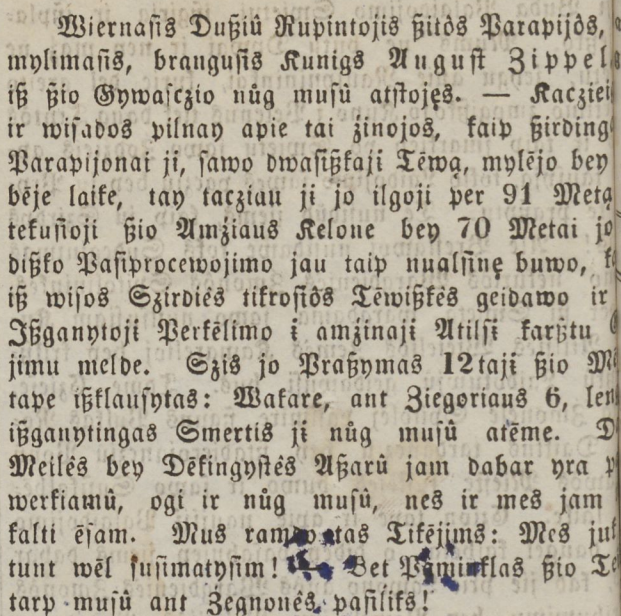 Wiernasis Dußiû Rupintojis ßitôs Parapijôs,
mylimasis, brangusis Kunigs August Zippel
iß ßio Gywasczio nûg musû atstojęs. — Kacziei
ir wisados pilnay apie tai źinojos, kaip ßirding
Parapijonai ji, sawo dwasißkaji Tėwą, mylėjo bey
bėje laike, tay tacziau ji jo ilgoji per 91 Metą
tekusioji ßio Amźiaus Kelone bey 70 Metai jo
dißko Pasiprocewojimo jau taip nualsinę buwo,
iß wisos Szirdiés tikrosiôs Tėwißkês geidawo ir
Jßganytoji Perkėlimo i amźinaji Atilsi karßtu
jimu melde. Szis jo Praßymas 12taji ßio
tape ißklausytas: Wakare, ant Ziegoriaus 6, len
ißganytingas Smertis ji nûg musû atėme. D
Meilês bey Dėkingystês Aßarû jam dabar yra p
werkiamû, ogi ir nûg musû, nes ir mes jam
kalti ėsam. Mus Tikėjims: Mes juk
tunt wėl susimatysim! — Bet Paminklas ßio Te
tarp musû ant Żegnonês pasiliks!